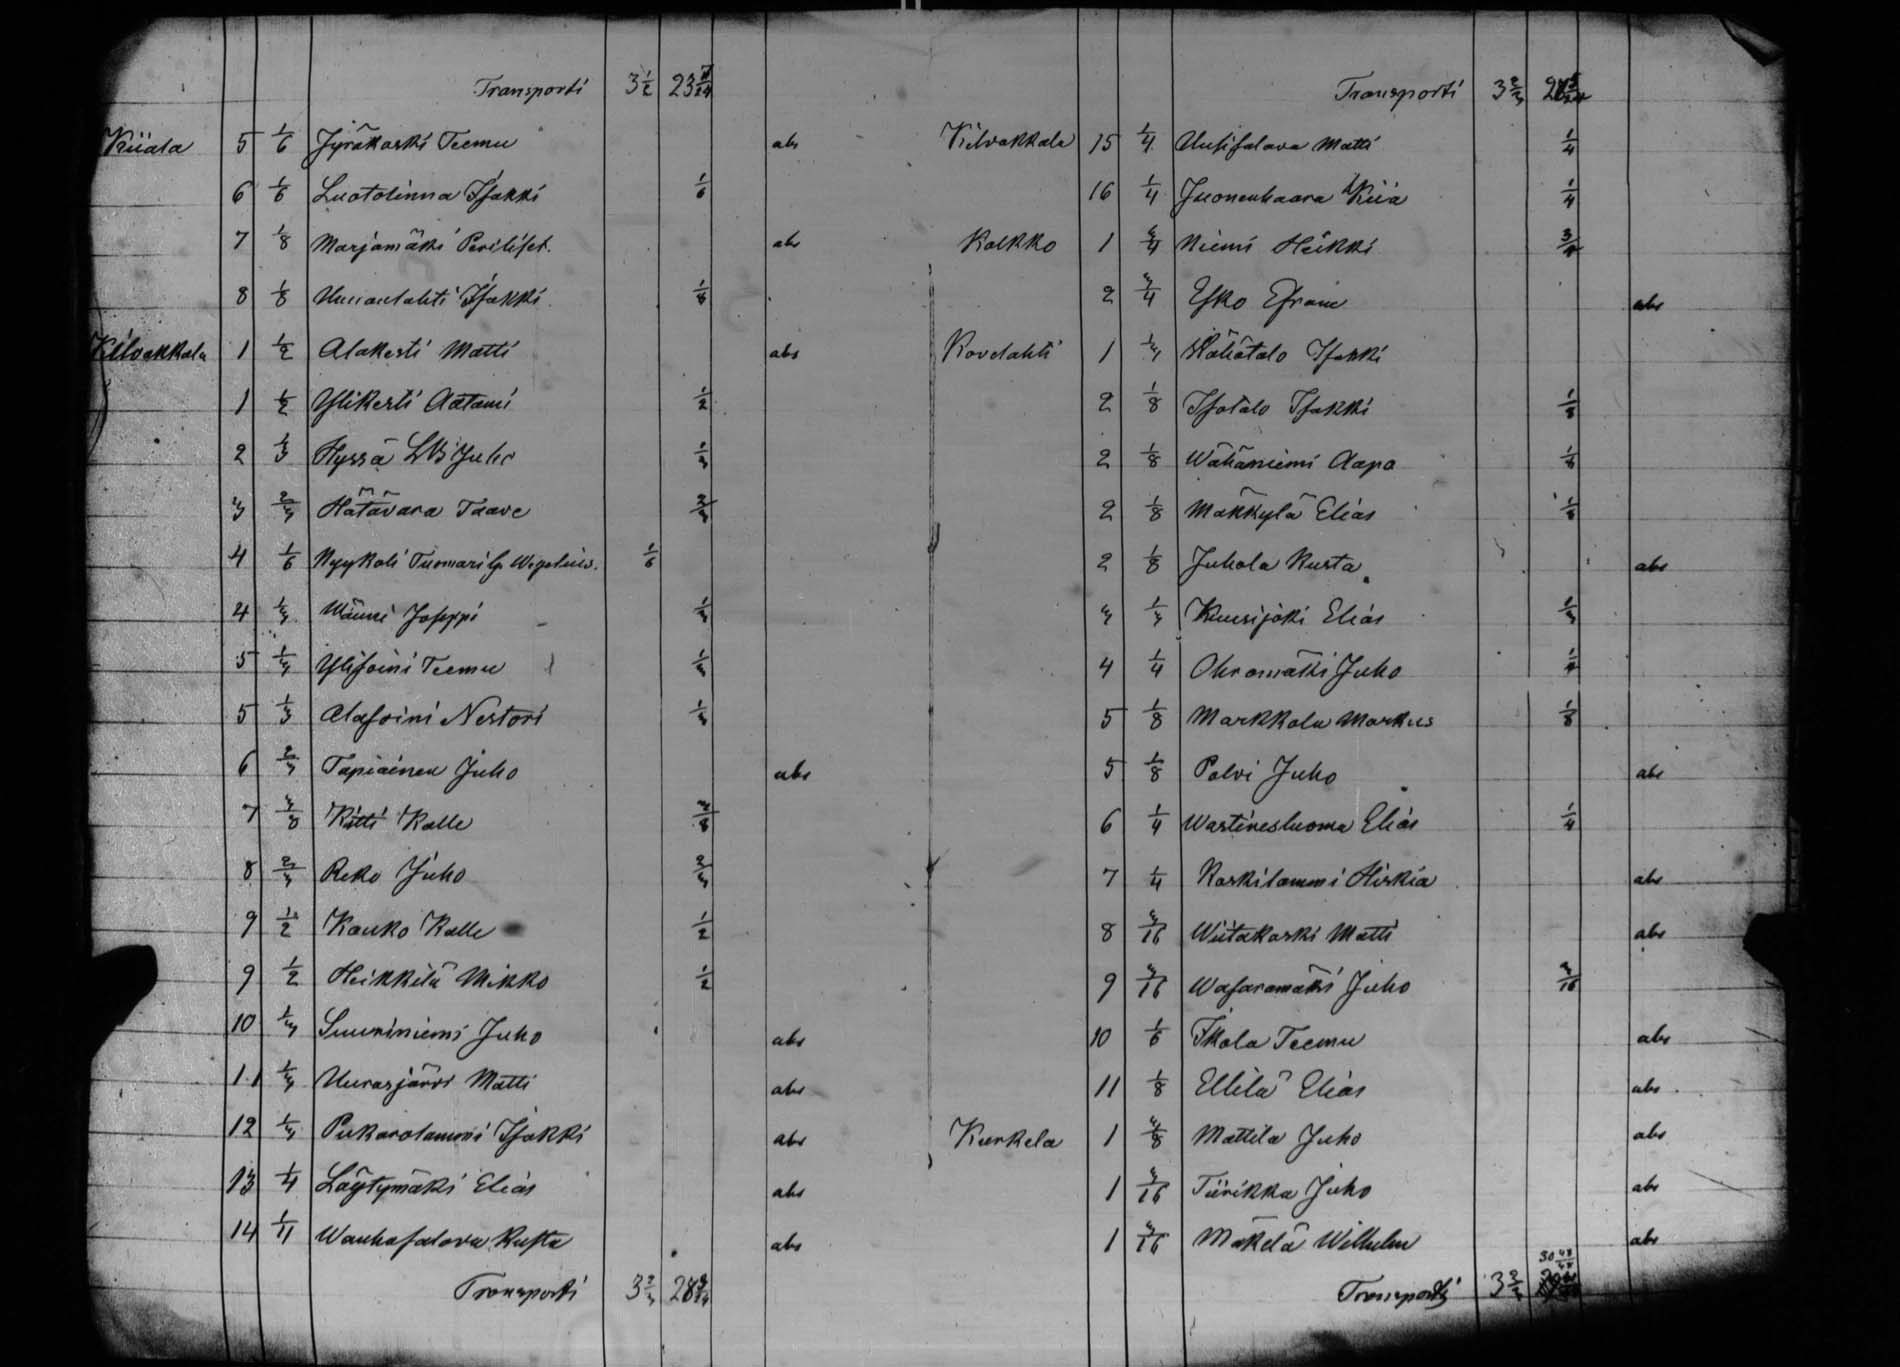 Transporti 3 1/2 23
Kiiala 5 1/6 Jyräkoski Teemu abs
6 1/6 Luotolinna Isakki 1/6
7 1/8 Marjamäki abs
8 1/8 Isakki 1/8
Kilvakkala 1 1/2 Alakesti Matti abs
1 1/2 Ylikesti Aatami 1/2
2 1/3 Hyssä Juho 1/3
3 2/3 Hätävara Taave 2/3
4 1/6 Nyykoli Tuomari 1/6
4 1/3 Joseppi 1/3
5 1/3 Ylisoini Teemu 1/3
5 1/3 Alasoini Nestori 1/3
6 2/3 Tapiainen Juho abs
7 3/8 Kitti Kalle 3/8
8 2/3 Reko Juho 2/3
9 1/2 Kauko Kalle 1/2
9 1/2 Heikkilä Mikko 1/2
10 1/3 Suuriniemi Juho abs
11 1/3 Uurasjärvi Matti abs
12 1/3 Pukarolammi Isakki abs
13 1/4 Löytymäki Elias abs
14 Wanhasalava Kusta abs
Transporti 3 2/3 28
Transporti 3 2/3
Kilvakkala 15 1/4 Uusisalava Matti 1/4
16 1/4 Juonenhaara Kiia 1/4
Kolkko 1 3/4 Niemi Heikki 3/4
2 3/4 Esko Efraim abs
Kovelahti 1 1/3 Isakki
2 1/8 Isotalo Isakki 1/8
2 1/8 Wähäniemi Aapo 1/8
2 1/8 Mäkkylä Elias 1/8
2 1/8 Juhola Kusta abs
3 1/3 Kuusijoki Elias 1/3
4 1/4 Ohromätki Juho 1/4
5 1/8 Markkola Markus 1/8
5 1/8 Polvi Juho abs
6 1/4 Wastinesluoma Elias 1/4
7 1/4 Koskilammi Hiskia abs
8 3/16 Wiitakoski Matti abs
9 3/16 Wasaramäki Juho 3/16
10 1/6 Ikola Teemu abs
11 1/8 Ellilä Elias abs
Kurkela 1 3/8 Mattila Juho abs
1 3/16 Tiirikka Juho abs
1 3/16 Mäkelä Wilhelm abs
Transporti 3 2/3